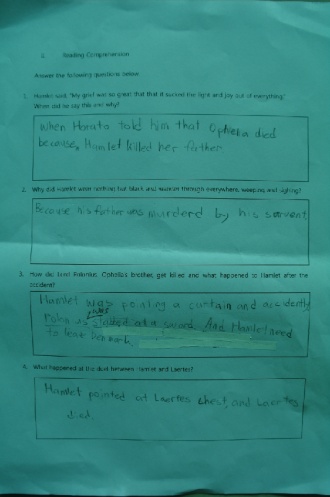 4. Reading Comprehension
Answer the following questions below.
1. Hamlet said, "My grief was so great that that it sucked the light and joy out of everything."
When did he say this and why?
When Horato told him that Ophelia died
because, Hamlet killed her father.
2. Why did Hamlet wear nothing but black and wander through everywhere, weeping and sighing?
Because his father was murderd by his servent
3. How did Lord Polonius, Ophelia's brother, get killed and what happened to Hamlet after the
accident?
Hamlet was pointing a curtain and accidently
was
at a sword. And Hamlet need
To leave Denmark.
4. What happened at the duel between Hamlet and Laertes?
Hamlet pointed at Laertes chest, and Laertes
died.